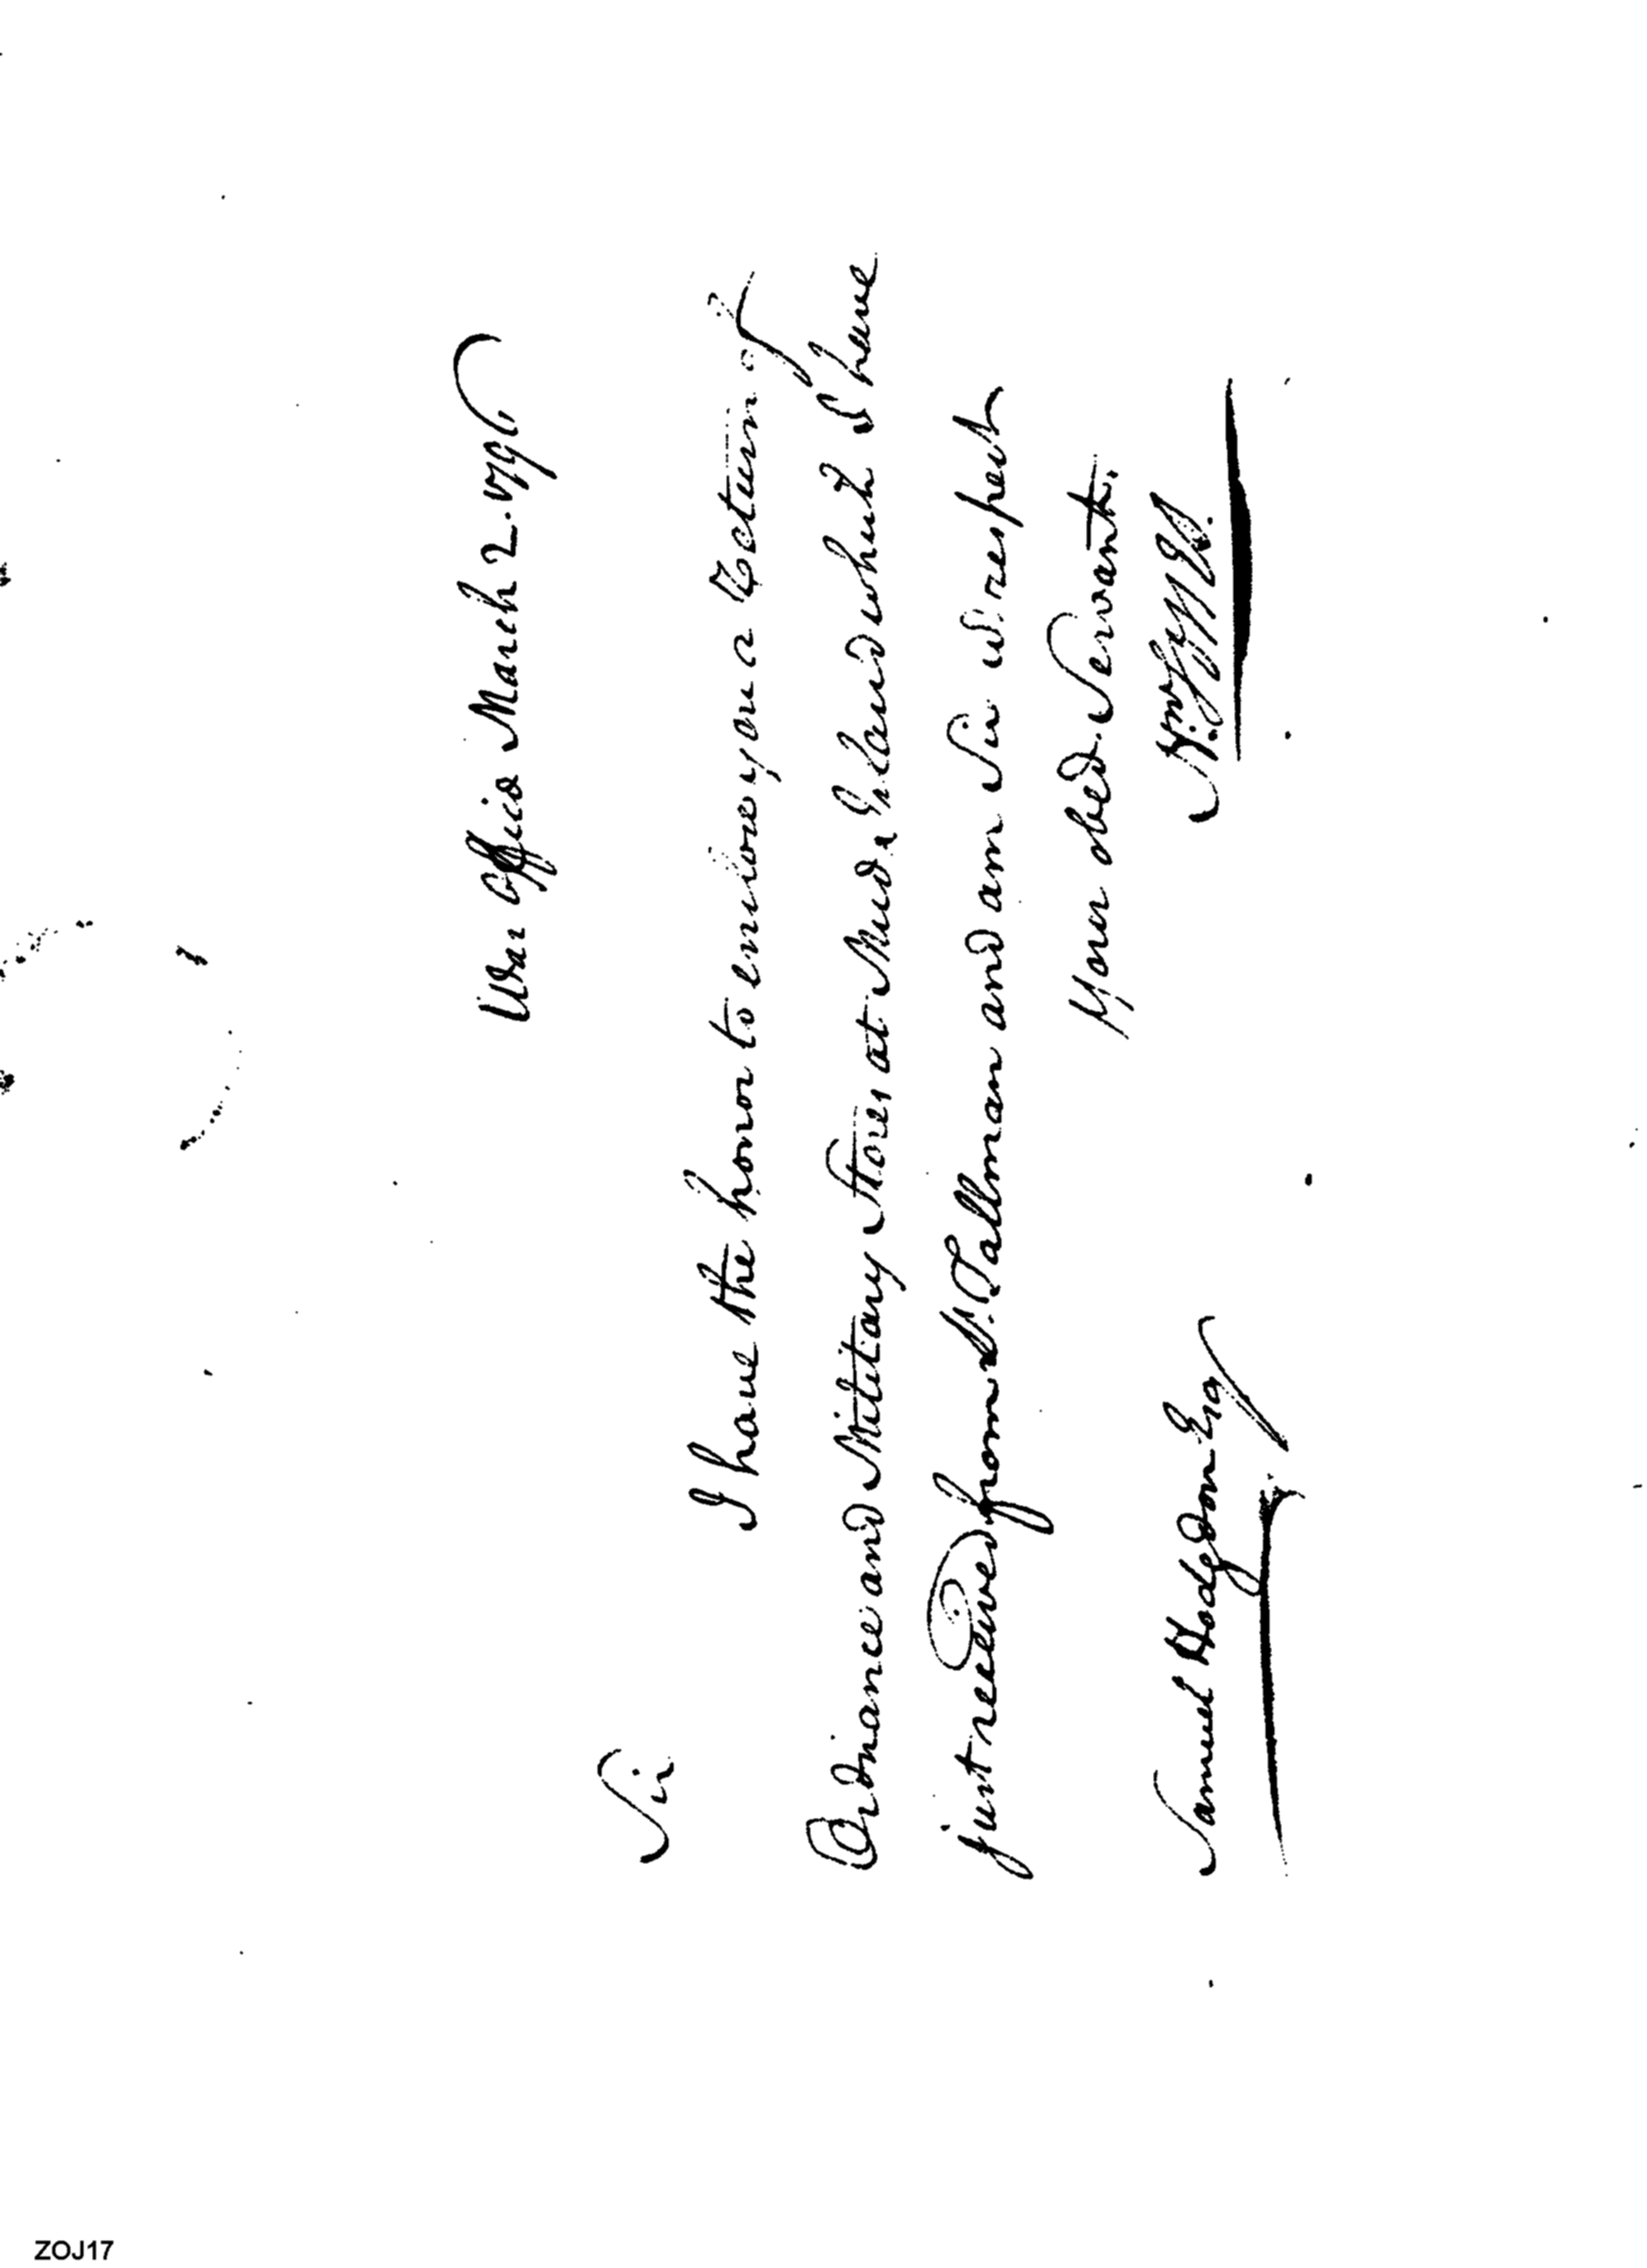 War Office March 2. 1796
Sir
I have the honor to enclose you a Return of
Ordnance and Military Stores at Mud Island which I have
just received from Dr. Tallman and am Sir wt. respect
Your obed. Servant.
Samuel Hodgdon Esq
ZOJ17